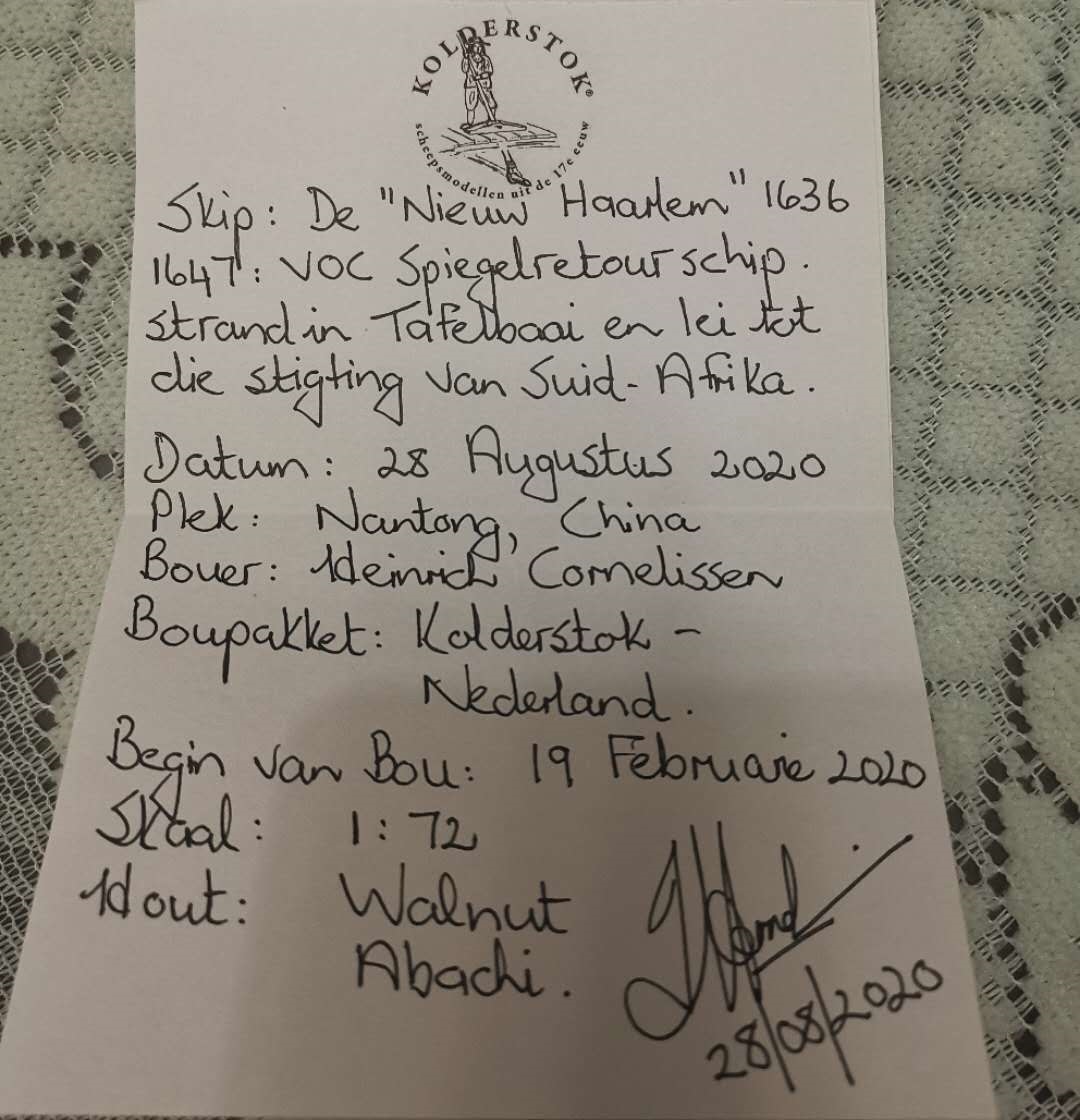 KOLDERSTOK®
scheepsmodellen uit de 17e eeuw
Skip: De "Nieuw Haarlem" 1636
1647: VOC Spiegelretourschip.
strand in Tafelbaai en lei tot
die stigting van Suid-Afrika.
Datum: 28 Augustus 2020
Plek: Nantong, China
Bouer: Heinrich Cornelissen
Boupakket: Kolderstok -
Nederland.
Begin van Bou: 19 Februarie 2020
Skaal: 1:72
Hout: Walnut
Abachi.
28/08/2020